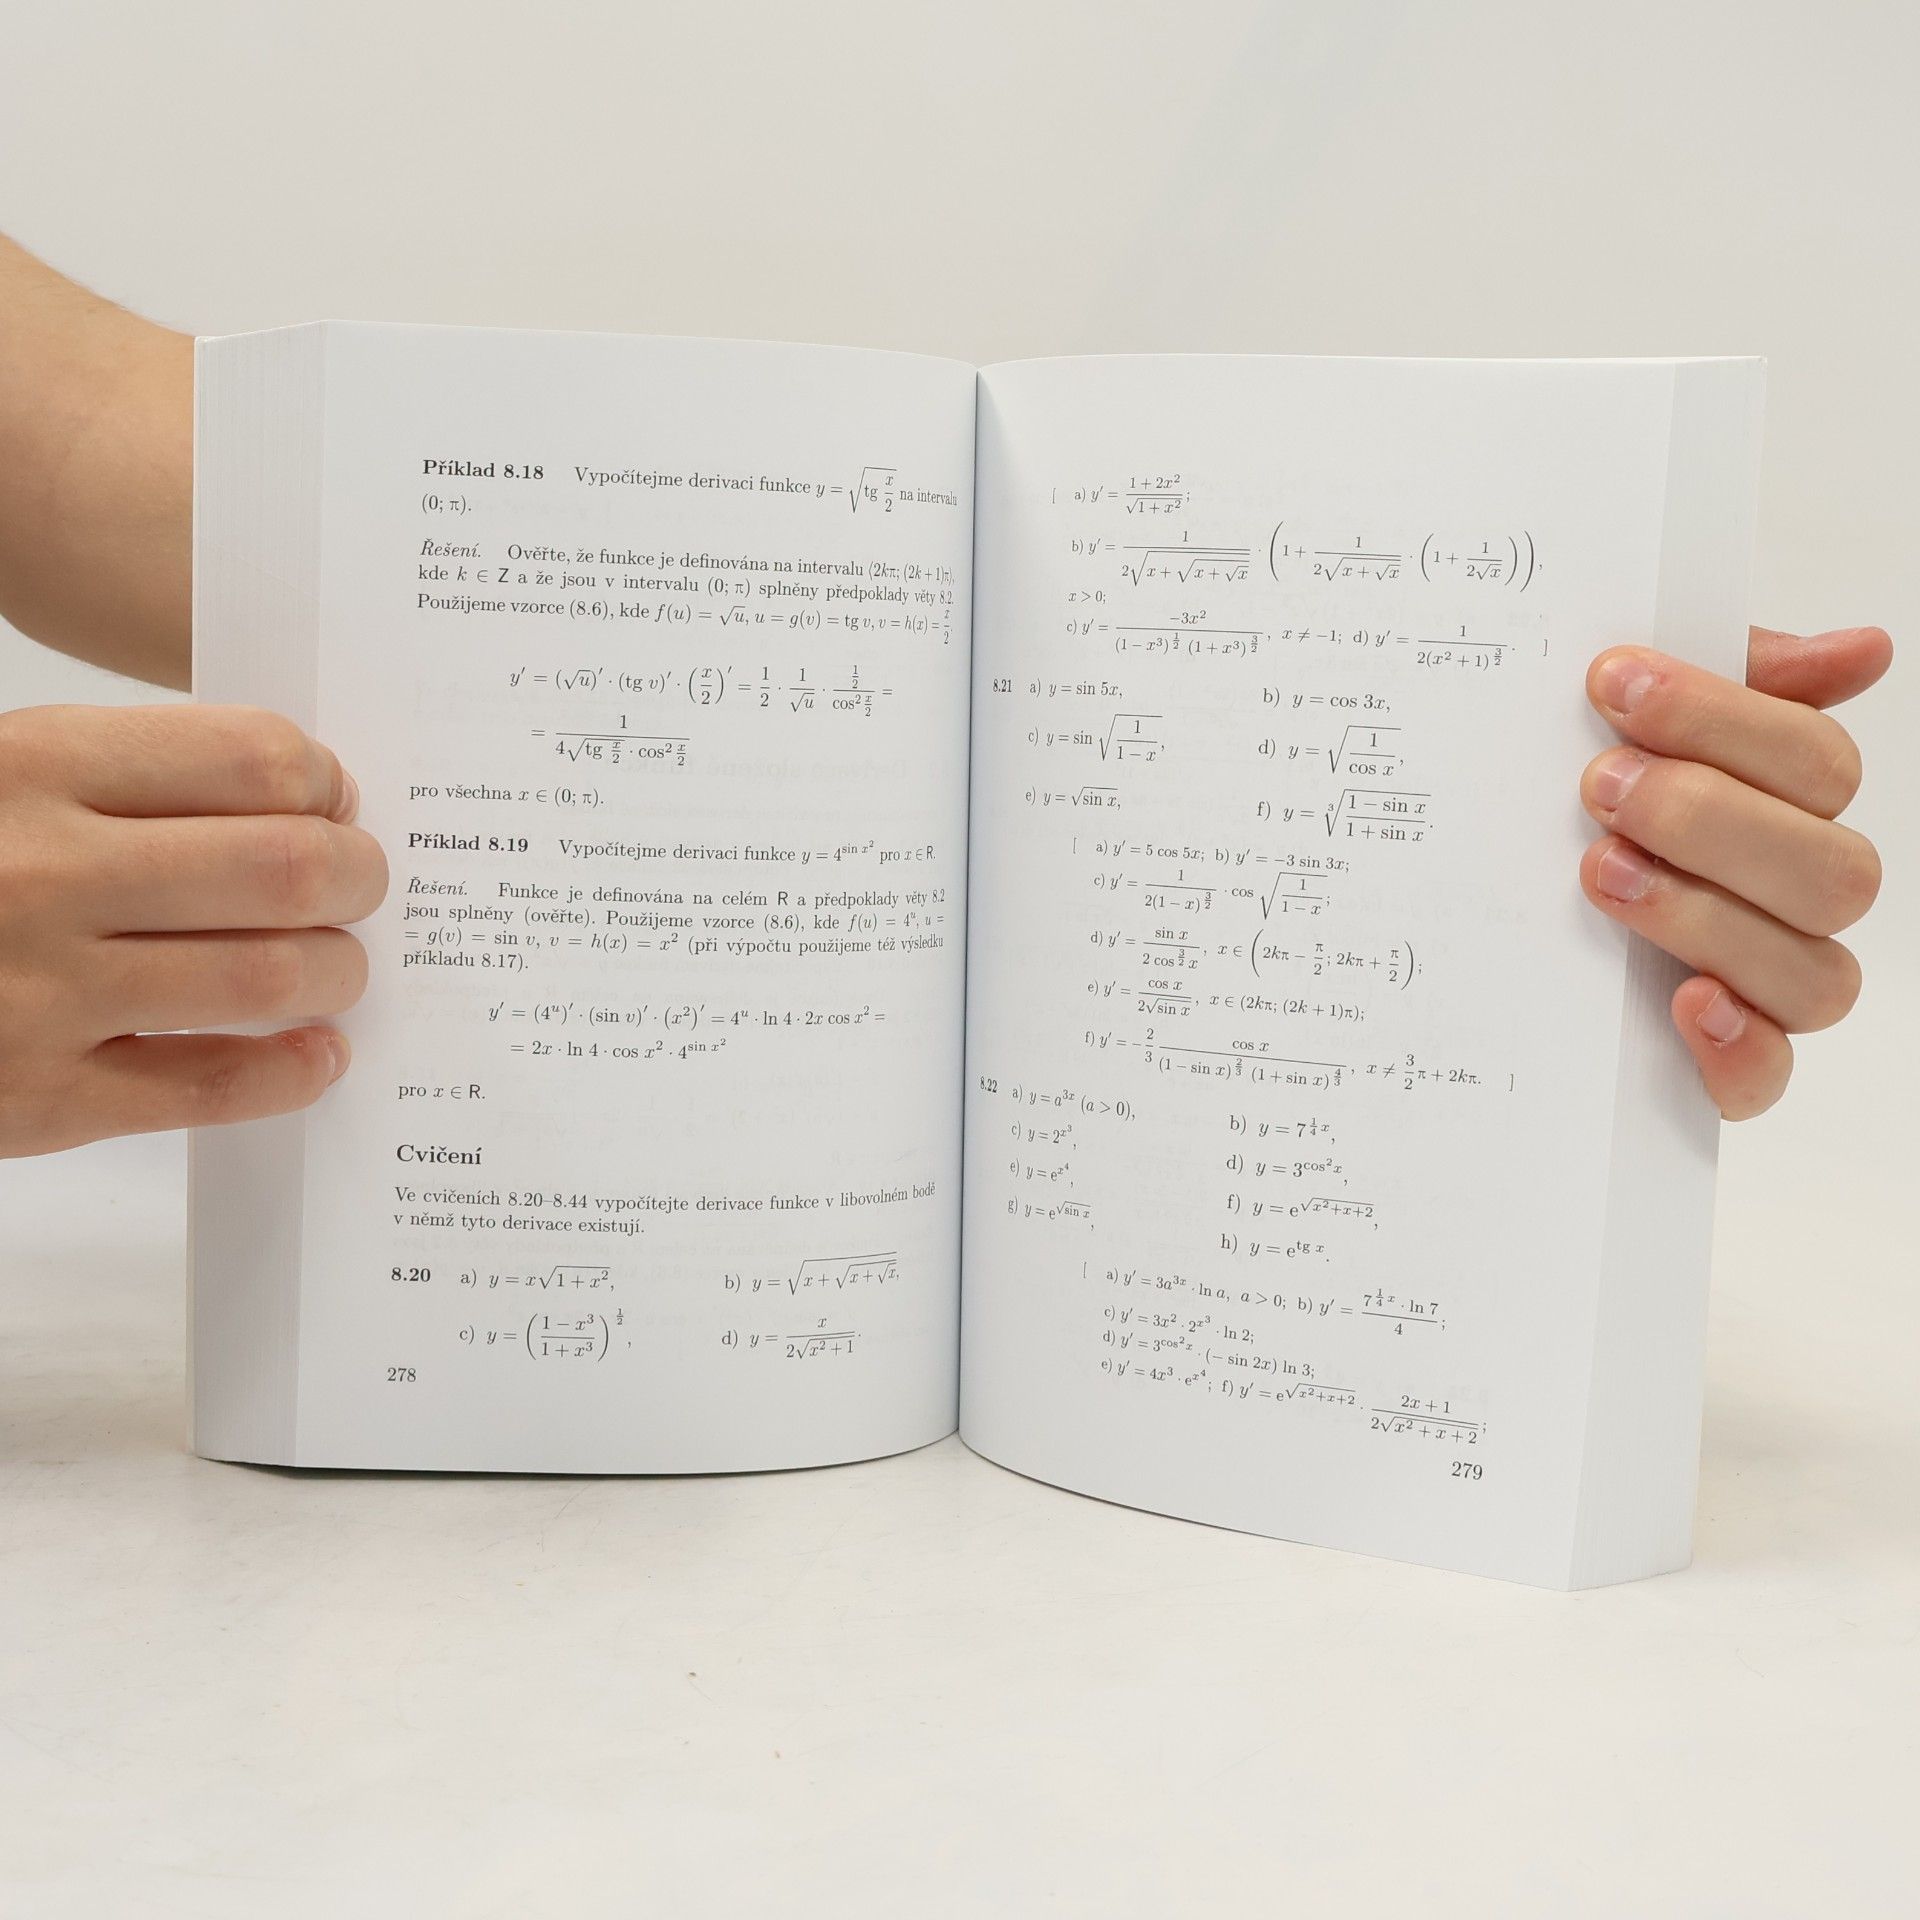 Příklad 8.18 Vypočítejme derivaci funkce y = √(tg x/2) na intervalu
(0; π).
Řešení. Ověřte, že funkce je definována na intervalu ⟨2kπ; (2k + 1)π),
kde k ∈ Z a že jsou v intervalu (0; π) splněny předpoklady věty 8.2.
Použijeme vzorce (8.6), kde f(u) = √u, u = g(v) = tg v, v = h(x) = x/2.
y′ = (√u)′ · (tg v)′ · (x/2)′ = 1/2 · 1/√u · (1/2)/(cos² x/2) =
= 1/(4√(tg x/2) · cos² x/2)
pro všechna x ∈ (0; π).
Příklad 8.19 Vypočítejme derivaci funkce y = 4^(sin x²) pro x ∈ R.
Řešení. Funkce je definována na celém R a předpoklady věty 8.2
jsou splněny (ověřte). Použijeme vzorce (8.6), kde f(u) = 4^u, u =
= g(v) = sin v, v = h(x) = x² (při výpočtu použijeme též výsledku
příkladu 8.17).
y′ = (4^u)′ · (sin v)′ · (x²)′ = 4^u · ln 4 · 2x cos x² =
= 2x · ln 4 · cos x² · 4^(sin x²)
pro x ∈ R.
Cvičení
Ve cvičeních 8.20–8.44 vypočítejte derivace funkce v libovolném bodě
v němž tyto derivace existují.
8.20 a) y = x√(1 + x²), b) y = √(x + √(x + √x)),
c) y = ((1 − x³)/(1 + x³))^(1/2), d) y = x/(2√(x² + 1)).
278
[ a) y′ = (1 + 2x²)/√(1 + x²);
b) y′ = 1/(2√(x + √(x + √x))) · (1 + 1/(2√(x + √x)) · (1 + 1/(2√x))),
x > 0;
c) y′ = −3x²/((1 − x³)^(1/2) (1 + x³)^(3/2)), x ≠ −1; d) y′ = 1/(2(x² + 1)^(3/2)). ]
8.21 a) y = sin 5x, b) y = cos 3x,
c) y = sin √(1/(1 − x)), d) y = √(1/cos x),
e) y = √(sin x), f) y = ³√((1 − sin x)/(1 + sin x)).
[ a) y′ = 5 cos 5x; b) y′ = −3 sin 3x;
c) y′ = 1/(2(1 − x)^(3/2)) · cos √(1/(1 − x));
d) y′ = sin x/(2 cos^(3/2) x), x ∈ (2kπ − π/2; 2kπ + π/2);
e) y′ = cos x/(2√(sin x)), x ∈ (2kπ; (2k + 1)π);
f) y′ = −2/3 cos x/((1 − sin x)^(2/3) (1 + sin x)^(4/3)), x ≠ 3/2 π + 2kπ. ]
8.22 a) y = a^(3x) (a > 0), b) y = 7^(1/4 x),
c) y = 2^(x³), d) y = 3^(cos² x),
e) y = e^(x⁴), f) y = e^√(x²+x+2),
g) y = e^√(sin x), h) y = e^(tg x).
[ a) y′ = 3a^(3x) · ln a, a > 0; b) y′ = (7^(1/4 x) · ln 7)/4;
c) y′ = 3x² · 2^(x³) · ln 2;
d) y′ = 3^(cos² x) · (− sin 2x) ln 3;
e) y′ = 4x³ · e^(x⁴); f) y′ = e^√(x²+x+2) · (2x + 1)/(2√(x² + x + 2));
279